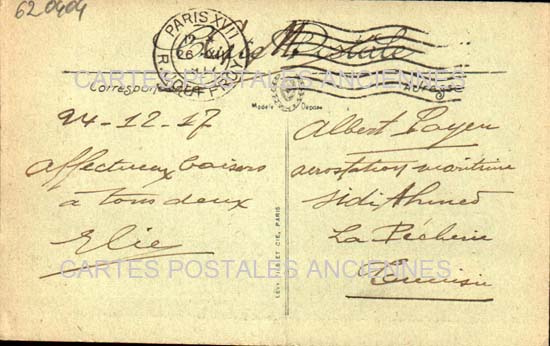 620404
PARIS XVII
R. JOUFFROY
Carte Postale
CARTES POSTALES ANCIENNES
Correspondance
Adresse
Modèle Déposé
24-12-17
affectueux baisers
à tous deux
Elie
LÉVY FILS ET CIE, PARIS
Albert Payen
aerostation maritime
Sidi Ahmed
La Pêcherie
Tunisie
CARTES POSTALES ANCIENNES